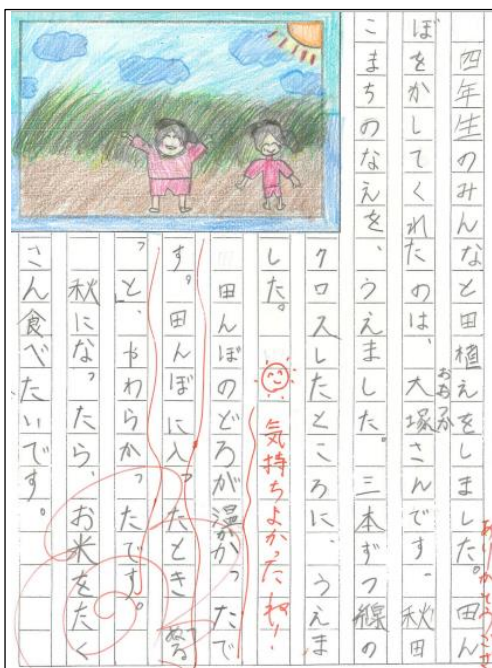 ありがとうござ
四年生のみんなと田植えをしました。田ん
ぼをかしてくれたのは、大塚さんです。秋田
おおつか
こまちのなえを、うえました。三本ずつ線の
クロスしたところに、うえま
した。
気持ちよかったねー!
田んぼのどろが温かかったで
す。田んぼに入ったときぬる
っと、やわらかったです。
秋になったら、お米をたく
さん食べたいです。